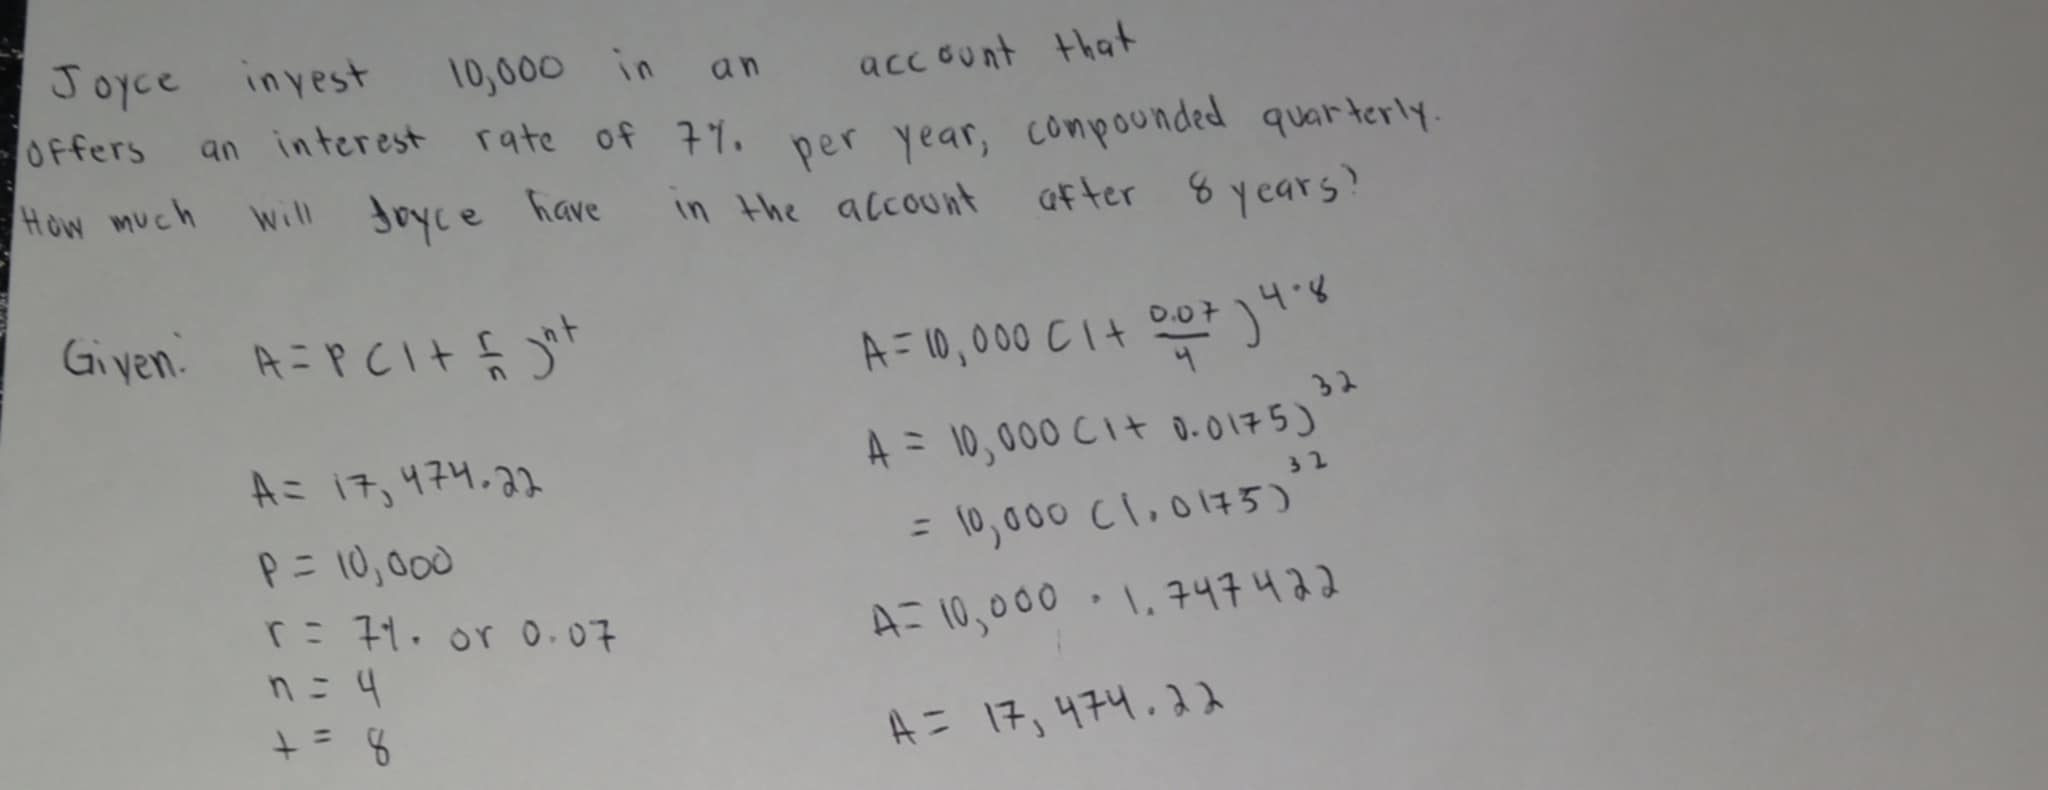 Joyce invest 10,000 in an account that
offers an interest rate of 7% per year, compounded quarterly.
How much will Joyce have in the account after 8 years?
Given: A = P(1 + r/n)^nt
A = 17,474.22
P = 10,000
r = 7% or 0.07
n = 4
t = 8
A = 10,000 (1 + 0.07/4)^4·8
A = 10,000 (1 + 0.0175)^32
= 10,000 (1.0175)^32
A = 10,000 · 1.747422
A = 17,474.22